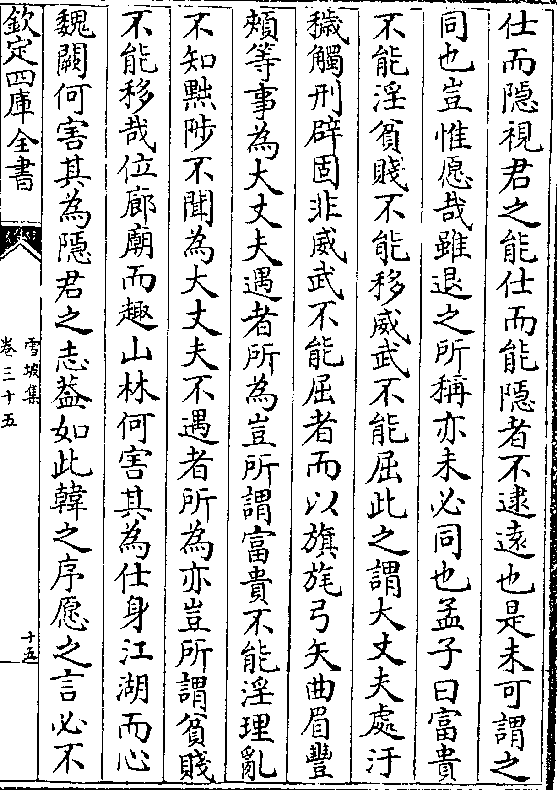 仕而隱視君之能仕而能隱者不逮逺也是未可謂之
同也豈惟愿哉雖退之所稱亦未必同也孟子曰富貴
不能淫貧賤不能移威武不能屈此之謂大丈夫處汙
穢觸刑辟固非威武不能屈者而以旗旄弓矢曲眉豐
頰等事為大丈夫遇者所為豈所謂富貴不能淫理亂
不知黜陟不聞為大丈夫不遇者所為亦豈所謂貧賤
不能移哉位廊廟而趣山林何害其為仕身江湖而心
魏闕何害其為隱君之志葢如此韓之序愿之言必不
欽定四庫全書
雪坡集
卷三十五
十五